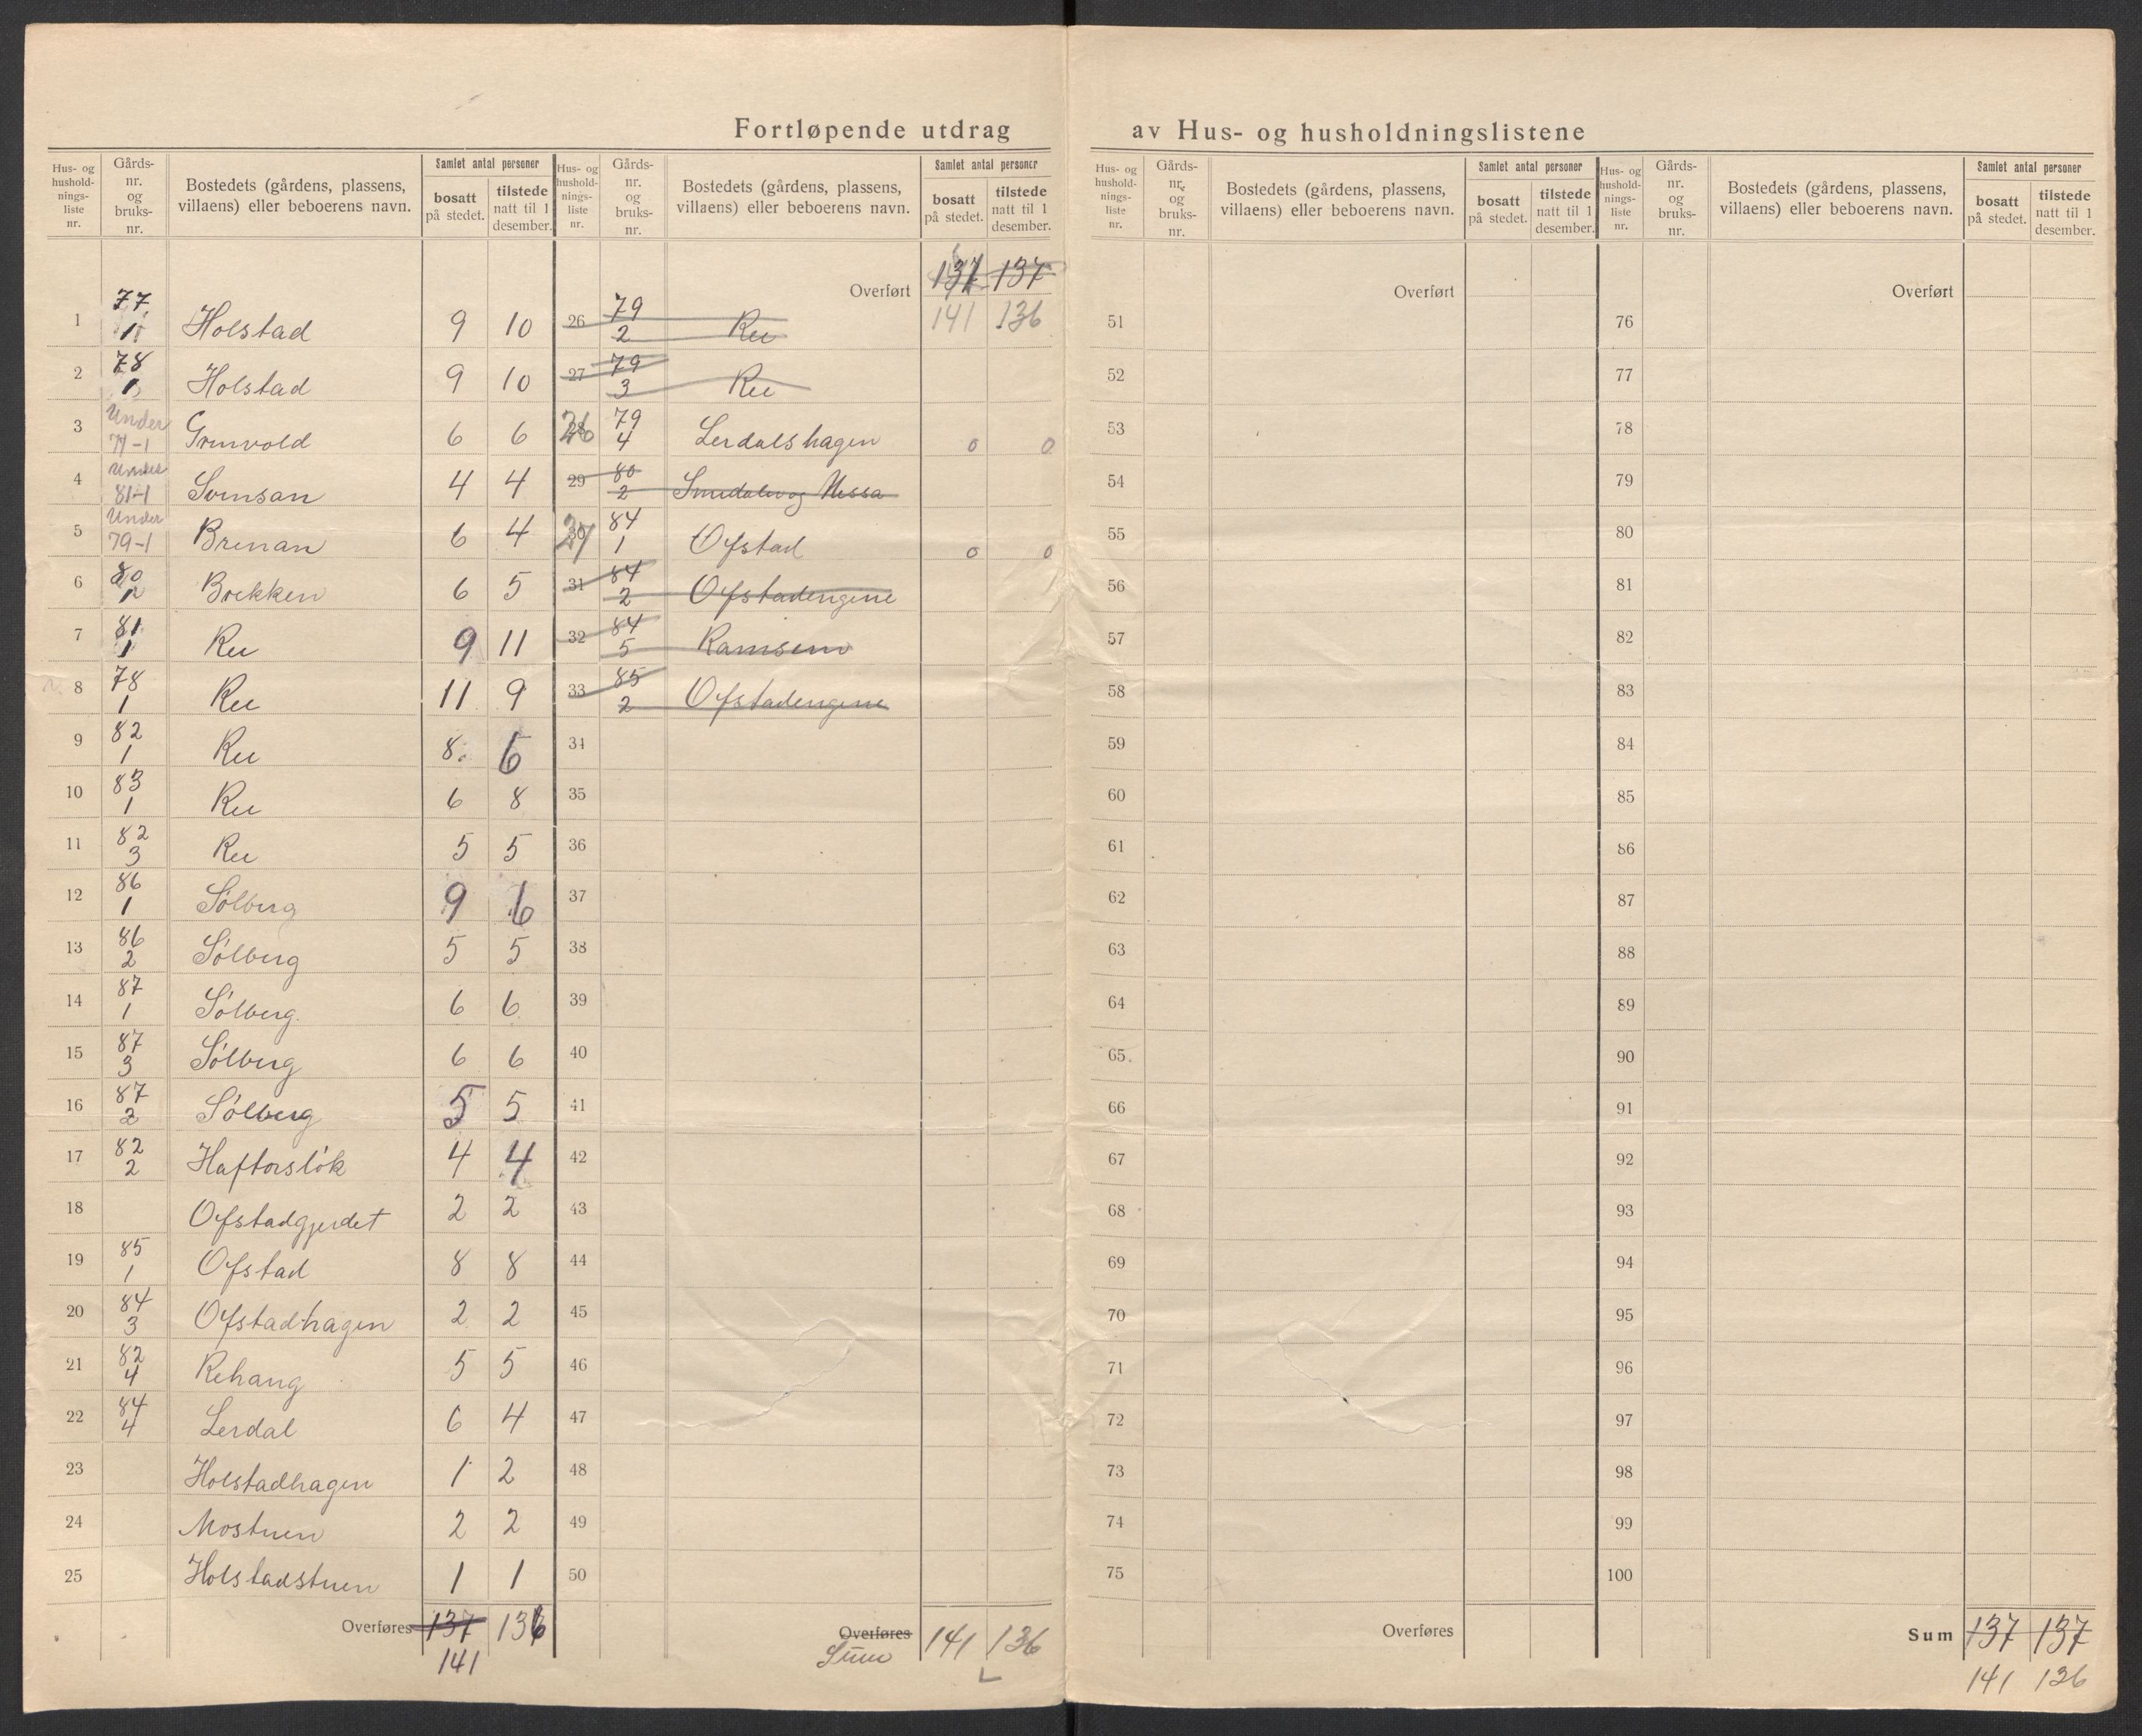 Fortløpende utdrag av Hus- og husholdningslistene
Hus- og husholdnings-liste nr. | Gårds-nr. og bruks-nr. | Bostedets (gårdens, plassens, villaens) eller beboerens navn. | Samlet antal personer | bosatt på stedet. | tilstede natt til 1 desember.
1 | 77 1 | Holstad | 9 | 10
2 | 78 1 | Holstad | 9 | 10
3 | Under 79-1 | | 6 | 6
4 | Under 81-1 | | 4 | 4
5 | Under 79-1 | Brenan | 6 | 4
6 | 80 | Brekken | 6 | 5
7 | 81 1 | Ree | 9 | 11
8 | 78 1 | Ree | 11 | 9
9 | 82 1 | Ree | 8 | 6
10 | 83 1 | Ree | 6 | 8
11 | 82 3 | Ree | 5 | 5
12 | 86 1 | Sólberg | 9 | 6
13 | 86 2 | Sólberg | 5 | 5
14 | 87 1 | Sólberg | 6 | 6
15 | 87 3 | Sólberg | 6 | 6
16 | 87 2 | Sólberg | 5 | 5
17 | 82 2 | Haftorslók | 4 | 4
18 | Ofstadgjerdet | 2 | 2
19 | 85 1 | Ofstad | 8 | 8
20 | 84 3 | Ofstadhagen | 2 | 2
21 | 82 4 | Rehaug | 5 | 5
22 | 84 4 | Lerdal | 6 | 4
23 | Holstadhagen | 1 | 2
24 | Mostuen | 2 | 2
25 | Holstadstuen | 1 | 1
Overføres | 137 | 136
141
Hus- og husholdnings-liste nr. | Gårds-nr. og bruks-nr. | Bostedets (gårdens, plassens, villaens) eller beboerens navn. | Samlet antal personer | bosatt på stedet. | tilstede natt til 1 desember.
Overført | 137 | 137
141 | 136
26 | 79 2 | Ree
27 | 79 3 | Ree
28 26 | 79 4 | Lerdalshagen | 0 | 0
29 | 80 2 | og Nessa
30 27 | 84 1 | Ofstad | 0 | 0
31 | 84 2 | Ofstadengene
32 | 84 5 | Ramsem
33 | 85 2 | Ofstadengene
34
35
36
37
38
39
40
41
42
43
44
45
46
47
48
49
50
Overføres | 141 | 136
Sum
Hus- og husholdnings-liste nr. | Gårds-nr. og bruks-nr. | Bostedets (gårdens, plassens, villaens) eller beboerens navn. | Samlet antal personer | bosatt på stedet. | tilstede natt til 1 desember.
Overført
51
52
53
54
55
56
57
58
59
60
61
62
63
64
65
66
67
68
69
70
71
72
73
74
75
Overføres
Hus- og husholdnings-liste nr. | Gårds-nr. og bruks-nr. | Bostedets (gårdens, plassens, villaens) eller beboerens navn. | Samlet antal personer | bosatt på stedet. | tilstede natt til 1 desember.
Overført
76
77
78
79
80
81
82
83
84
85
86
87
88
89
90
91
92
93
94
95
96
97
98
99
100
Sum | 137 | 137
141 | 136